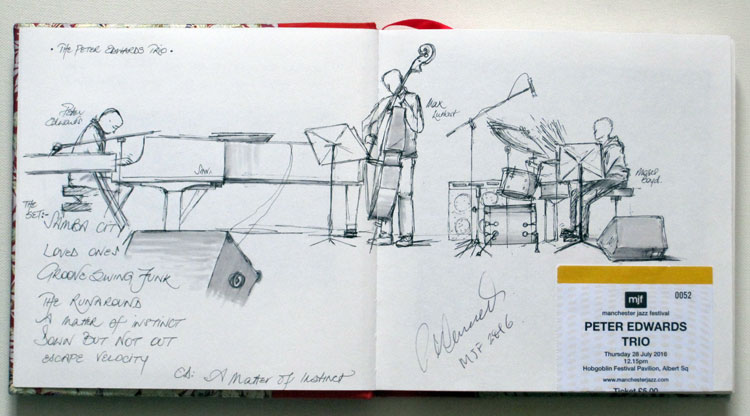 • The Peter Edwards Trio •
Peter
Edwards
Max
Luthert
Moses
Boyd.
The
Set:-
Samba City
Loved Ones
Groove Swing Funk
The Runaround
A Matter of instinct
Down But Not Out
Escape Velocity
CD: A Matter of Instinct
MJF 2016
mjf
0052
manchester jazz festival
PETER EDWARDS
TRIO
Thursday 28 July 2016
12.15pm
Hobgoblin Festival Pavilion, Albert Sq
www.manchesterjazz.com
Ticket £5.00